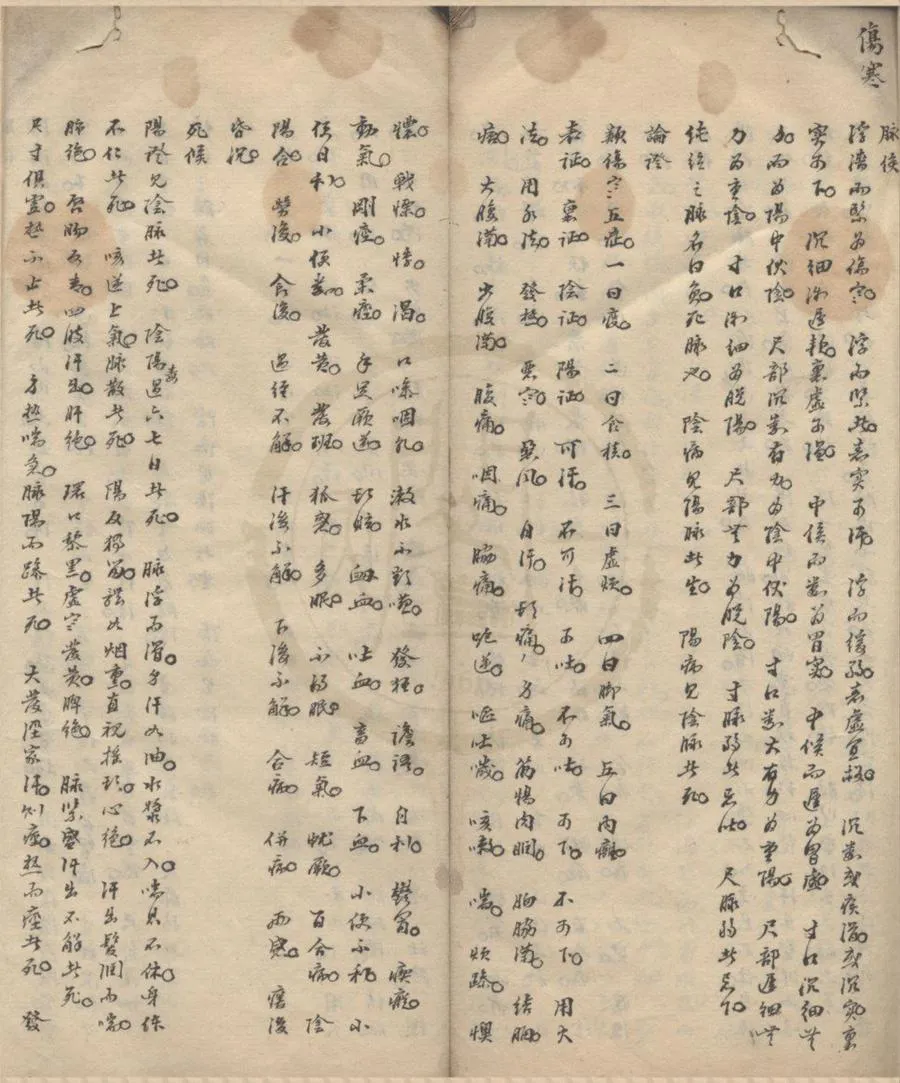 傷寒
脉候
浮濇而緊為傷寒。浮而緊者表實可汗。浮而緩弱者表虛宜救。沉數或疾滑或沉實裏
實可下。沉細微遲軟裏虛可温。中候而數為胃實。中候而遲為胃虛。寸口沉細無
力而為陽中伏陰。尺部沉數有力為陰中伏陽。寸口數大有力為重陽。尺部遲細無
力為重陰。寸口微細為脫陽。尺部無力為脫陰。寸脉弱者忌吐。尺脉弱者忌下。
純絃之脉名曰負死脉也。陰病見陽脉者生。陽病見陰脉者死。
論證
類傷寒五症。一曰痰。二曰食積。三曰虛煩。四曰脚氣。五曰內癰。
表证。裏证。陰证。陽证。可汗。不可汗。可吐。不可吐。可下。不可下。用火
法。用水法。發熱。惡寒。惡風。自汗。頭痛。身痛。筋惕肉瞤。胸脇滿。結胸。
痞。大腹滿。少腹滿。腹痛。咽痛。脇痛。呃逆。嘔吐噦。咳嗽。喘。煩躁。懊
憹。戰慄。悸。渴。口燥咽乾。漱水不欲嚥。發狂。譫語。自利。鬱冒。瘈瘲。
動氣。剛痙。柔痙。手足厥逆。頭眩。衄血。吐血。畜血。下血。小便不利。小
便自利。小便數。發黄。發班。狐惑。多眠。不得眠。短氣。蚘厥。百合病。陰
陽合。勞復。食復。過經不解。汗後不解。下後不解。合病。併病。兩感。瘥後
昏沉。
死候
陽證見陰脉者死。陰陽毒過六七日者死。脉浮而滑。身汗如油。水漿不入。喘息不休。身体
不仁者死。咳逆上氣脉散者死。陽反獨留。體如烟熏。直視摇頭心絶。汗出髮潤而喘。
肺絶。唇吻反青。四肢汗出。肝絶。環口黎黑。虛寒發黄脾絶。脉緊盛汗出不解者死。
尺寸俱虛熱不止者死。身熱喘急。脉陽而躁者死。大發濕家汗。則痙。熱而痙者死。發